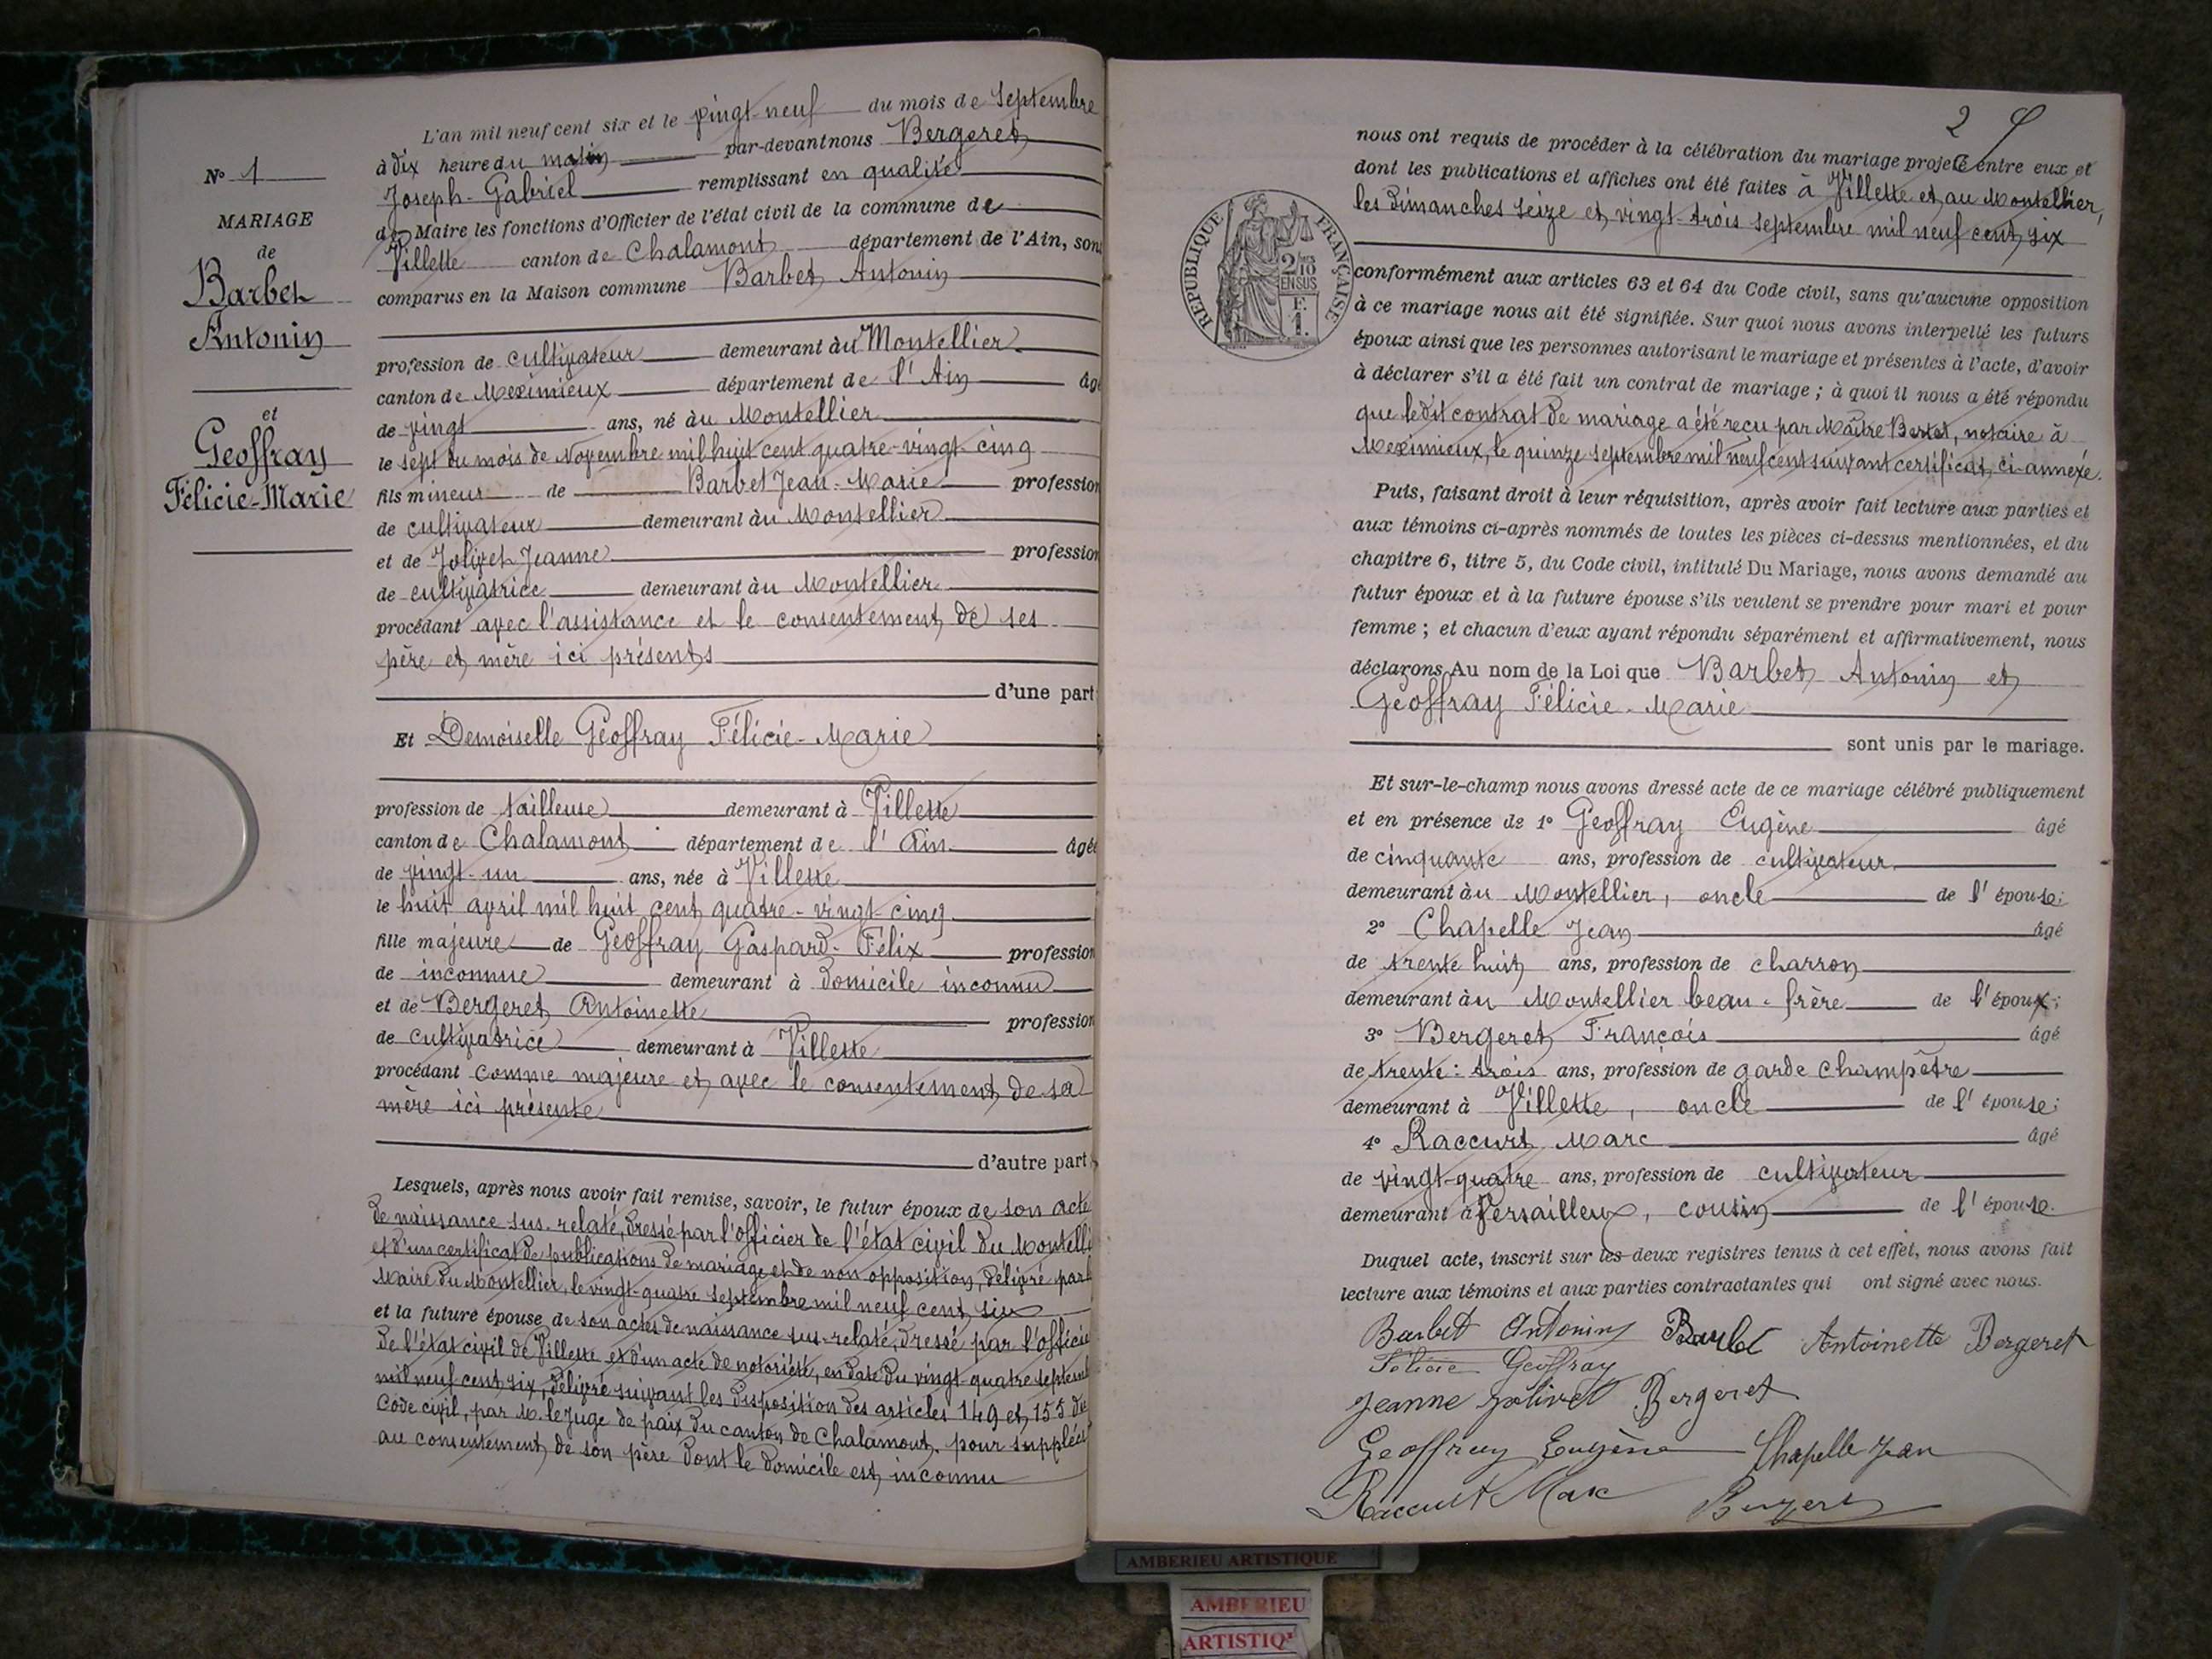 N° 1
MARIAGE
de
Barbet
Antonin
et
Geoffray
Félicie-Marie
L'an mil neuf cent six et le vingt-neuf du mois de Septembre
à dix heure du matin par-devant nous Bergeret
Joseph-Gabriel remplissant en qualité
de Maire les fonctions d'Officier de l'état civil de la commune de
Villette canton de Chalamont département de l'Ain, sont
comparus en la Maison commune Barbet Antonin
profession de cultivateur demeurant au Montellier
canton de Meximieux département de l'Ain âgé
de vingt ans, né au Montellier
le sept du mois de Novembre mil huit cent quatre-vingt-cinq
fils mineur de Barbet Jean-Marie profession
de cultivateur demeurant au Montellier
et de Jolivet Jeanne profession
de cultivatrice demeurant au Montellier
procédant avec l'assistance et le consentement de ses
père et mère ici présents
d'une part
Et Demoiselle Geoffray Félicie-Marie
profession de tailleuse demeurant à Villette
canton de Chalamont département de l'Ain âgée
de vingt-un ans, née à Villette
le huit avril mil huit cent quatre-vingt-cinq
fille majeure de Geoffray Gaspard-Félix profession
de inconnue demeurant à domicile inconnu
et de Bergeret Antoinette profession
de cultivatrice demeurant à Villette
procédant comme majeure et avec le consentement de sa
mère ici présente
d'autre part
Lesquels, après nous avoir fait remise, savoir, le futur époux de son acte
de naissance sus-relaté, dressé par l'officier de l'état civil du Montelli
et d'un certificat de publications de mariage et de non opposition, délivré par
Maire du Montellier, le vingt-quatre septembre mil neuf cent six
et la future épouse de son actes de naissance sus-relaté, dressé par l'officie
de l'état civil de Villette et d'un acte de notoriété, en date du vingt-quatre septem
mil neuf cent six, délivré suivant les disposition des articles 149 et 155 du
Code civil, par M. le Juge de paix du canton de Chalamont, pour suppléer
au consentement de son père dont le domicile est inconnu
2
nous ont requis de procéder à la célébration du mariage projeté entre eux et
dont les publications et affiches ont été faites à Villette et au Montellier,
les Dimanches seize et vingt-trois septembre mil neuf cent six
RÉPUBLIQUE FRANÇAISE
2/10
EN SUS
F.
1.
conformément aux articles 63 et 64 du Code civil, sans qu'aucune opposition
à ce mariage nous ait été signifiée. Sur quoi nous avons interpellé les futurs
époux ainsi que les personnes autorisant le mariage et présentes à l'acte, d'avoir
à déclarer s'il a été fait un contrat de mariage ; à quoi il nous a été répondu
que le dit contrat de mariage a été reçu par Maître Bertet, notaire à
Meximieux, le quinze septembre mil neuf cent suivant certificat ci-annexé.
Puis, faisant droit à leur réquisition, après avoir fait lecture aux parties et
aux témoins ci-après nommés de toutes les pièces ci-dessus mentionnées, et du
chapitre 6, titre 5, du Code civil, intitulé Du Mariage, nous avons demandé au
futur époux et à la future épouse s'ils veulent se prendre pour mari et pour
femme ; et chacun d'eux ayant répondu séparément et affirmativement, nous
déclarons Au nom de la Loi que Barbet Antonin et
Geoffray Félicie-Marie
sont unis par le mariage.
Et sur-le-champ nous avons dressé acte de ce mariage célébré publiquement
et en présence de 1° Geoffray Eugène âgé
de cinquante ans, profession de cultivateur
demeurant au Montellier, oncle de l'épouse;
2° Chapelle Jean âgé
de trente huit ans, profession de charron
demeurant au Montellier beau-frère de l'époux;
3° Bergeret François âgé
de trente-trois ans, profession de garde champêtre
demeurant à Villette, oncle de l'épouse;
4° Raccurt Marc âgé
de vingt-quatre ans, profession de cultivateur
demeurant à Versailleux, cousin de l'épouse.
Duquel acte, inscrit sur les deux registres tenus à cet effet, nous avons fait
lecture aux témoins et aux parties contractantes qui ont signé avec nous.
Barbet Antonin Barbet Antoinette Bergeret
Félicie Geoffray
Jeanne Jolivet Bergeret
Geoffray Eugène Chapelle Jean
Raccurt Marc Bergeret
AMBERIEU ARTISTIQUE
AMBERIEU
ARTISTIQ